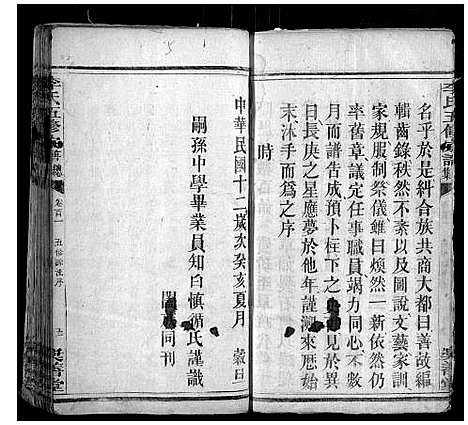 名乎於是糾合族共商大都曰善故編
輯齒錄秩然不紊以及圖說文藝家訓
家規服制祭儀雖曰煥然一新依然仍
率舊章議定任事職員竭力同心不數
月而譜告成預卜在下之見於異
日長庚之星應夢於他年謹溯來歷始
末沐手而為之序
時
中華民國十二歲次癸亥夏月 穀旦
嗣孫中學畢業員知白慎循氏謹識
同刊
李氏五修
卷首
五修譜序